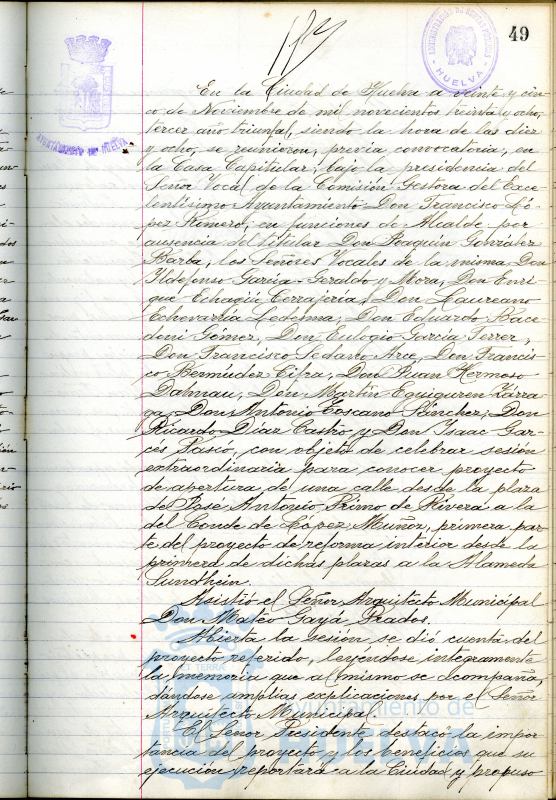 49
AYUNTAMIENTO DE HUELVA
HUELVA
En la Ciudad de Huelva a veinte y cin-
co de Noviembre de mil novecientos treinta y ocho,
tercer año triunfal, siendo la hora de las diez
y ocho, se reunieron, previa convocatoria, en
la Casa Capitular, bajo la presidencia del
Señor Vocal de la Comisión Gestora del Exce-
lentísimo Ayuntamiento Don Francisco Ló-
pez Romero, en funciones de Alcalde por
ausencia del titular Don Joaquín González
Barba, los Señores Vocales de la misma Don
Ildefonso García-Geraldo y Mora, Don Enri-
que Echagüe Terrajería, Don Laureano
Echevarría Ledesma, Don Eduardo Bace-
doni Gómez, Don Eulogio García Ferrer,
Don Francisco Sedano Arce, Don Francis-
co Bermúdez Cifra, Don Juan Hermoso
Dalmau, Don Martín Eguiguren Lárra-
ga, Don Antonio Toscano Sánchez, Don
Ricardo Díaz Castro y Don Isaac Gar-
cés Pascó, con objeto de celebrar sesión
extraordinaria para conocer proyecto
de apertura de una calle desde la plaza
de José Antonio Primo de Rivera a la
del Conde de López Muñoz, primera par-
te del proyecto de reforma interior desde la
primera de dichas plazas a la Alameda
Sundhein.
Asistió el Señor Arquitecto Municipal
Don Mateo Gayá Prados.
Abierta la sesión, se dió cuenta del
proyecto referido, leyéndose íntegramente
la memoria que al mismo se acompaña,
dándose amplias explicaciones por el Señor
Arquitecto Municipal.
El Señor Presidente destacó la impor-
tancia del proyecto y los beneficios que su
ejecución reportará a la Ciudad y propuso
Ayuntamiento de
HUELVA